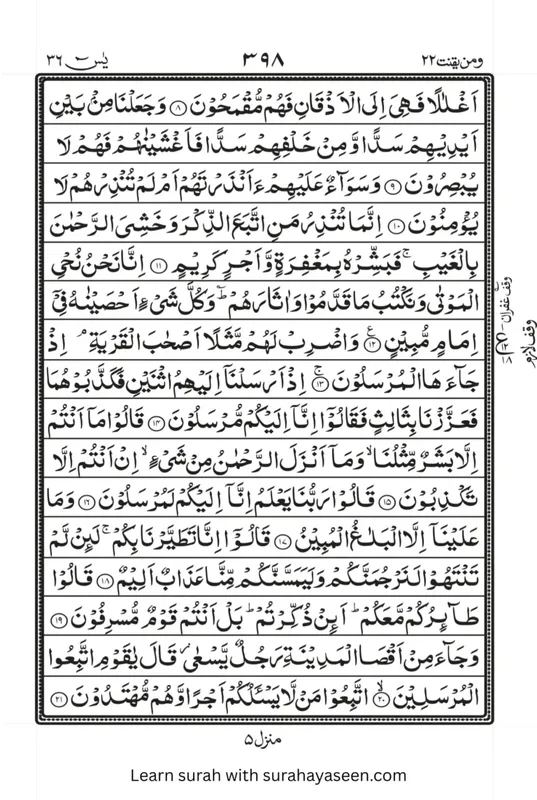 ومن يقنت ٢٢ ٣٩٨ يٰسٓ ٣٦
اَغْلٰلًا فَهِيَ اِلَى الْاَذْقَانِ فَهُمْ مُّقْمَحُوْنَ ﴿٨﴾ وَجَعَلْنَا مِنْۢ بَيْنِ
اَيْدِيْهِمْ سَدًّا وَّمِنْ خَلْفِهِمْ سَدًّا فَاَغْشَيْنٰهُمْ فَهُمْ لَا
يُبْصِرُوْنَ ﴿٩﴾ وَسَوَآءٌ عَلَيْهِمْ ءَاَنْذَرْتَهُمْ اَمْ لَمْ تُنْذِرْهُمْ لَا
يُؤْمِنُوْنَ ﴿١٠﴾ اِنَّمَا تُنْذِرُ مَنِ اتَّبَعَ الذِّكْرَ وَخَشِيَ الرَّحْمٰنَ
بِالْغَيْبِ ۚ فَبَشِّرْهُ بِمَغْفِرَةٍ وَّاَجْرٍ كَرِيْمٍ ﴿١١﴾ اِنَّا نَحْنُ نُحْيِ
الْمَوْتٰى وَنَكْتُبُ مَا قَدَّمُوْا وَاٰثَارَهُمْ ؕ وَكُلَّ شَيْءٍ اَحْصَيْنٰهُ فِيْٓ
اِمَامٍ مُّبِيْنٍ ﴿١٢﴾ وَاضْرِبْ لَهُمْ مَّثَلًا اَصْحٰبَ الْقَرْيَةِ ۘ اِذْ
جَآءَهَا الْمُرْسَلُوْنَ ﴿١٣﴾ اِذْ اَرْسَلْنَآ اِلَيْهِمُ اثْنَيْنِ فَكَذَّبُوْهُمَا
فَعَزَّزْنَا بِثَالِثٍ فَقَالُوْٓا اِنَّآ اِلَيْكُمْ مُّرْسَلُوْنَ ﴿١٤﴾ قَالُوْا مَآ اَنْتُمْ
اِلَّا بَشَرٌ مِّثْلُنَا ۙ وَمَآ اَنْزَلَ الرَّحْمٰنُ مِنْ شَيْءٍ ۙ اِنْ اَنْتُمْ اِلَّا
تَكْذِبُوْنَ ﴿١٥﴾ قَالُوْا رَبُّنَا يَعْلَمُ اِنَّآ اِلَيْكُمْ لَمُرْسَلُوْنَ ﴿١٦﴾ وَمَا
عَلَيْنَآ اِلَّا الْبَلٰغُ الْمُبِيْنُ ﴿١٧﴾ قَالُوْٓا اِنَّا تَطَيَّرْنَا بِكُمْ ۚ لَئِنْ لَّمْ
تَنْتَهُوْا لَنَرْجُمَنَّكُمْ وَلَيَمَسَّنَّكُمْ مِّنَّا عَذَابٌ اَلِيْمٌ ﴿١٨﴾ قَالُوْا
طَآئِرُكُمْ مَّعَكُمْ ؕ اَئِنْ ذُكِّرْتُمْ ؕ بَلْ اَنْتُمْ قَوْمٌ مُّسْرِفُوْنَ ﴿١٩﴾
وَجَآءَ مِنْ اَقْصَا الْمَدِيْنَةِ رَجُلٌ يَّسْعٰى ۡ قَالَ يٰقَوْمِ اتَّبِعُوا
الْمُرْسَلِيْنَ ﴿٢٠﴾ اتَّبِعُوْا مَنْ لَّا يَسْـَٔلُكُمْ اَجْرًا وَّهُمْ مُّهْتَدُوْنَ ﴿٢١﴾
وقف غفران
وقف لازم
منزل ٥
Learn surah with surahayaseen.com